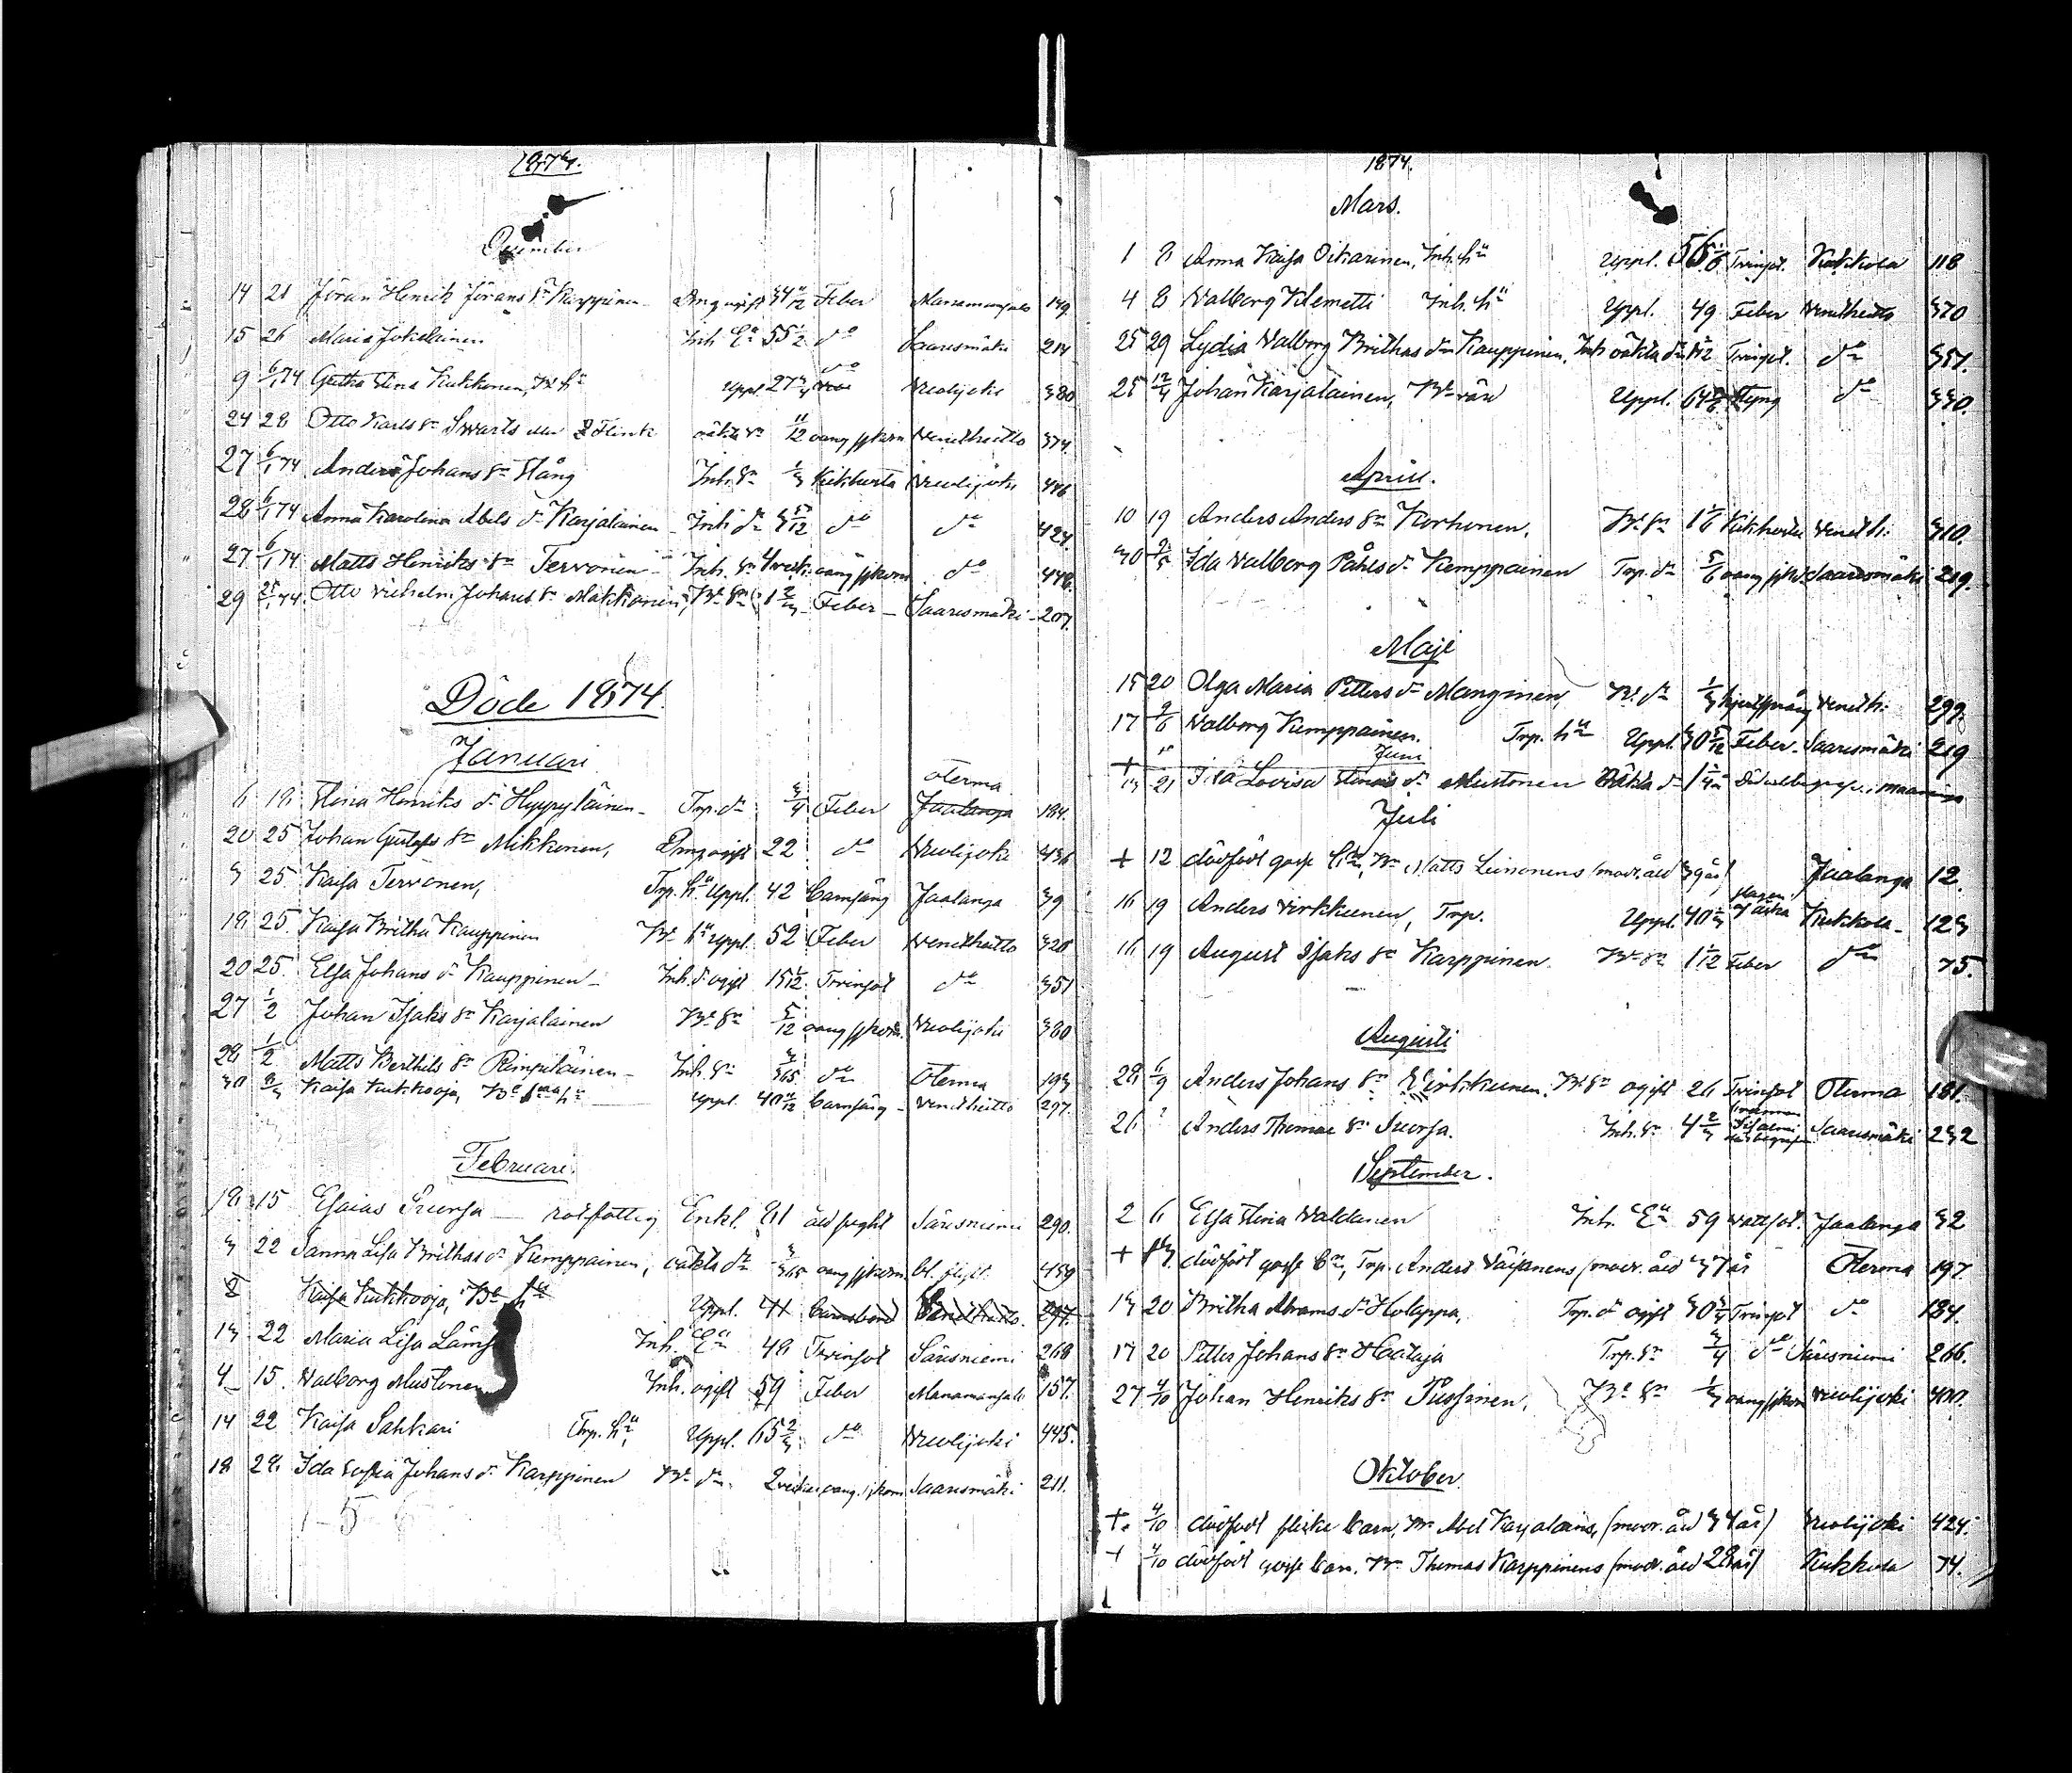 1873.
December
14 21 Jöran Henrik Jörans sn Karppinen Drng ogift 34 11/12 Feber Manamansalo 149
15 26 Maria Jokelainen Inh. Ea 55 1/2 do Saaresmäki 214
9 6/1 74 Greta Stina Kukkonen, Bd hu Uppl. 27 3/4 do Neulijoki 380
24 28 Otto Karls sn Swarts oäkta sn 11/12 oang sjkom Venetheitto 374.
27 6/1 74 Anders Johans sn Stång Inh. sn 1/3 Kikhosta Neulijoki 446
28 6/1 74 Anna Karolina Abels dr Karjalainen Inh dr 3 5/12 do do 424.
27 6/1 74 Matts Henriks sn Tervonen Inh. sn 4 veck. oang sjkom do 448.
29 25/1 74 Otto Vilhelm Johans sn Mikkonen, Bd sn 1 2/3 Feber Saaresmäki 207.
Döde 1874.
Januari
Oterma
6 18 Stina Henriks dr Hyyryläinen Trp. dr 3/4 Feber Jaalanga 184.
20 25 Johan Gustafs sn Mikkonen, Drng ogift 22 do Neulijoki 436
3 25 Kaisa Tervonen, Trp. hu Uppl. 42 Barnsäng Jaalanga 39
18 25. Kaisa Britha Kauppinen Bd hu Uppl. 52 Feber Venetheitto 320
20 25. Elsa Johans dr Kauppinen Inh. dr ogift 15 1/12 Tvinsot do 351
27 1/2 Johan Isaks sn Karjalainen Bd sn 5/12 oang sjkom. Neulijoki 380
28 1/2 Matts Berthils sn Pimpiläinen Inh. sn 3/365 do Oterma 193
30 8/3 Kaisa Kukkooja, Bd hu Uppl. 40 11/12 Barnsäng Venetheitto 297.
Februari
18 15 Esaias Suorsa rotfattig Enkl. 81 åldsvght Säresniemi 290.
3 22 Sanna Lisa Brithas dr Kemppainen, oäkta dr 3/365 oang sjkom. 459
Kaisa Kukkooja, Bd hu Uppl. 41 Barnsbörd Venetheitto. 297.
13 22 Maria Lisa Lämsä Inh. Ea 48 Tvinsot Säresniemi 268
4 15. Walborg Mustonen Inh. ogift 59 Feber Manamansalo 157.
14 22 Kaisa Sahkari Trp. hu, Uppl. 65 2/3 do Neulijoki 445.
18 28 Ida Sofia Johans dr Karppinen Bd dr. 2 veckor oang. sjkom. Saaresmäki 211.
1874.
Mars.
1 8 Anna Kaisa Oikarinen, Inh. hu Uppl. 56 1/6 Tvinsot. Kukkola 118
4 8 Walborg Klemetti Inh. hu Uppl. 49 Feber Venetheitto 370
25 29 Lydia Walborg Brithas dr Kauppinen. Inh oäkta dr Tvinsot. do 357.
25 12/4 Johan Karjalainen, Bd Uppl. Styng do 330.
Aprill.
10 19 Anders Anders sn Korhonen. Bd sn 1 1/6 Kikhosta Veneth. 310.
30 9/5 Ida Walborg Påhls dr Kemppainen Trp. dr 5/6 oang sjkd Saaresmäki 219.
Maji
15 20 Olga Maria Petters dr Manginen, Bd dr 1/3 Veneth. 299.
17 9/6 Walborg Kemppainen. Trp. hu Uppl. 30 5/12 Feber. Saaresmäki 219
Juni
13 21 Ida Lovisa dr Mustonen Oäkta dr 1 1/4
Juli
+ 12 dödfödt gosse bn, Bd Matts Leinonens (modr. åld 39 år) Jaalanga 12.
16 19 Anders Virkkunen, Trp. Uppl. 40 2/3 Kukkola 123
16 19 August Isaks sn Karppinen. Bd sn 1 1/12 Feber do 75.
Augusti
28 6/9 Anders Johans sn Virkkunen. Bd sn ogift 26 Tvinsot Oterma 181.
26 ? Anders Thomas sn Suorsa. Inh. sn 4 2/3 Saaresmäki 232
September.
2 6 Elsa Stina Waldanen Inh. Ea 59 Vattsot. Jaalanga 32
+ 13 dödfödt gosse bn, Trp. Anders Väisänens (modr. åld 37 år Oterma 197.
13 20 Britha Abrams dr Holappa, Trp. dr ogift 30 3/4 Tvinsot do 184.
17 20 Petter Johans sn Haataja Trp. sn 3/4 do Säresniemi 266.
27 4/10 Johan Henriks sn Pussinen, Bd sn 1/3 oang sjkom Neulijoki 400.
Oktober.
+. 4/10 dödfödt flicke barn, Bd Abel Karjalains, (modr. åld 34 år) Neulijoki 424.
+ 4/10 dödfödt gosse barn. Bd Thomas Karppinens (modr. åld 28 år) Kukkola 74.